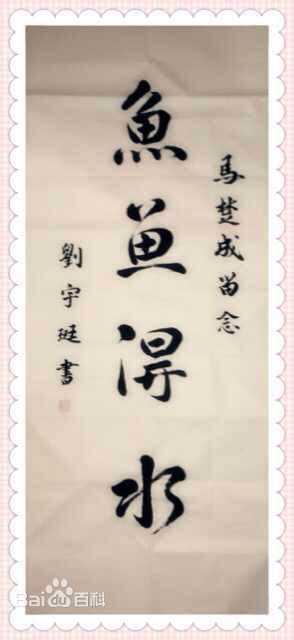 馬楚成留念
魚鱼得水
劉宇珽書
Bai百科